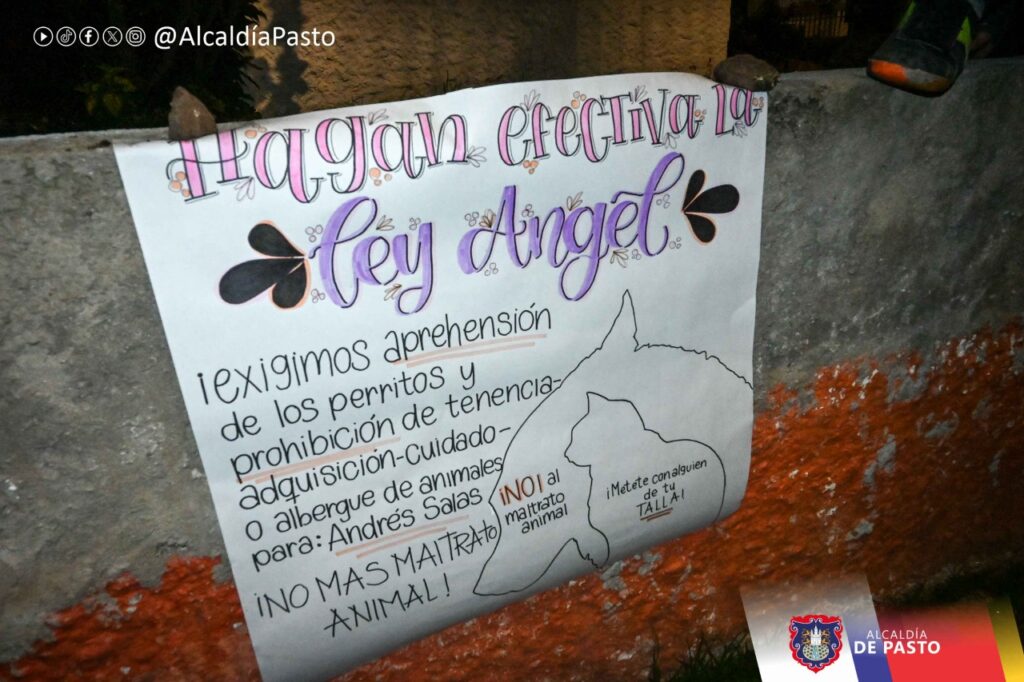 @AlcaldíaPasto
Hagan efectiva la
ley Angel
¡exigimos aprehensión
de los perritos y
prohibición de tenencia-
adquisición-cuidado-
o albergue de animales
para: Andrés Salas
¡NO MAS MALTRATO
ANIMAL!
¡NO! al
maltrato
animal
¡Metete con alguien
de tu
TALLA!
ALCALDÍA
DE PASTO